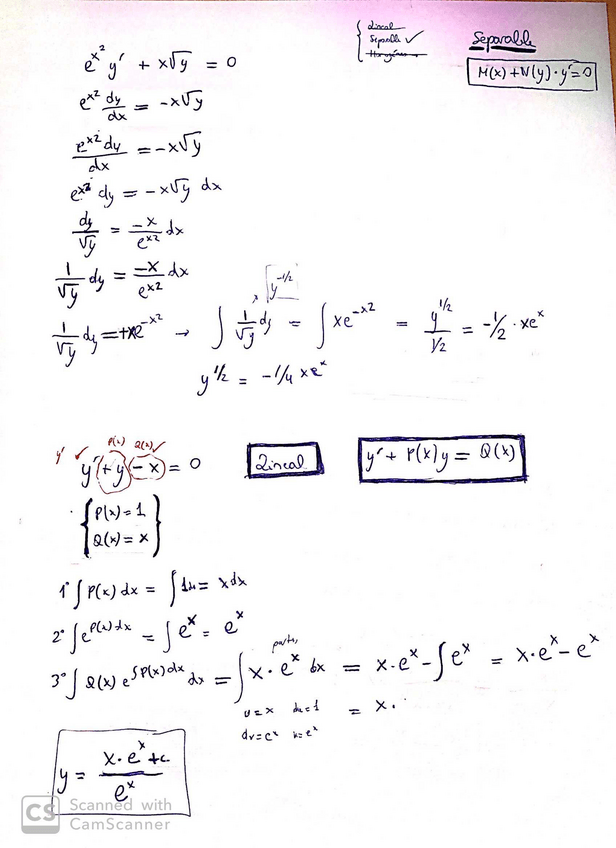 Lineal
Separable ✓
Separable
M(x) + N(y) · y' = 0
e^{x^2} y' + x√y = 0
e^{x2} dy/dx = -x√y
e^{x2} dy / dx = -x√y
e^{x2} dy = -x√y dx
dy/√y = -x/e^{x2} dx
1/√y dy = -x/e^{x2} dx
y^{-1/2}
1/√y dy = +xe^{-x2} → ∫ 1/√y dy = ∫ xe^{-x2} = y^{1/2} / 1/2 = -1/2 · xe^x
y^{1/2} = -1/4 xe^x
y' ✓ P(x) Q(x) ✓
y' + y - x = 0
Lineal
y' + P(x)y = Q(x)
P(x) = 1
Q(x) = x
1° ∫ P(x) dx = ∫ 1dx = xdx
2° ∫ e^{P(x) dx} = ∫ e^x = e^x
partes
3° ∫ Q(x) e^{∫P(x) dx} dx = ∫ x · e^x dx = x·e^x - ∫ e^x = x·e^x - e^x
u = x du = 1 = x ·
dv = e^x v = e^x
y = x·e^x + c / e^x
CS Scanned with
CamScanner